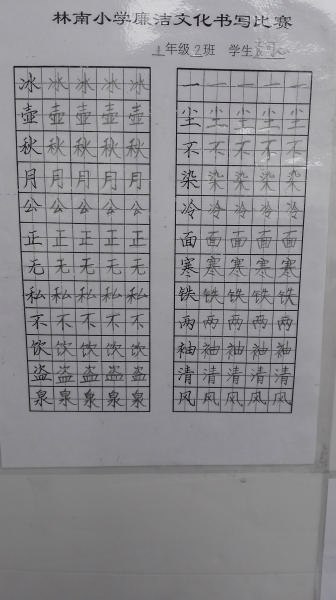 林南小学廉洁文化书写比赛
年级2班 学生
冰冰冰冰冰
壶壶壶壶壶
秋秋秋秋秋
月月月月月
公公公公公
正正正正正
无无无无无
私私私私私
不不不不不
饮饮饮饮饮
盗盗盗盗盗
泉泉泉泉泉
一一一一一
尘尘尘尘尘
不不不不不
染染染染染
冷冷冷冷冷
面面面面面
寒寒寒寒寒
铁铁铁铁铁
两两两两两
袖袖袖袖袖
清清清清清
风风风风风